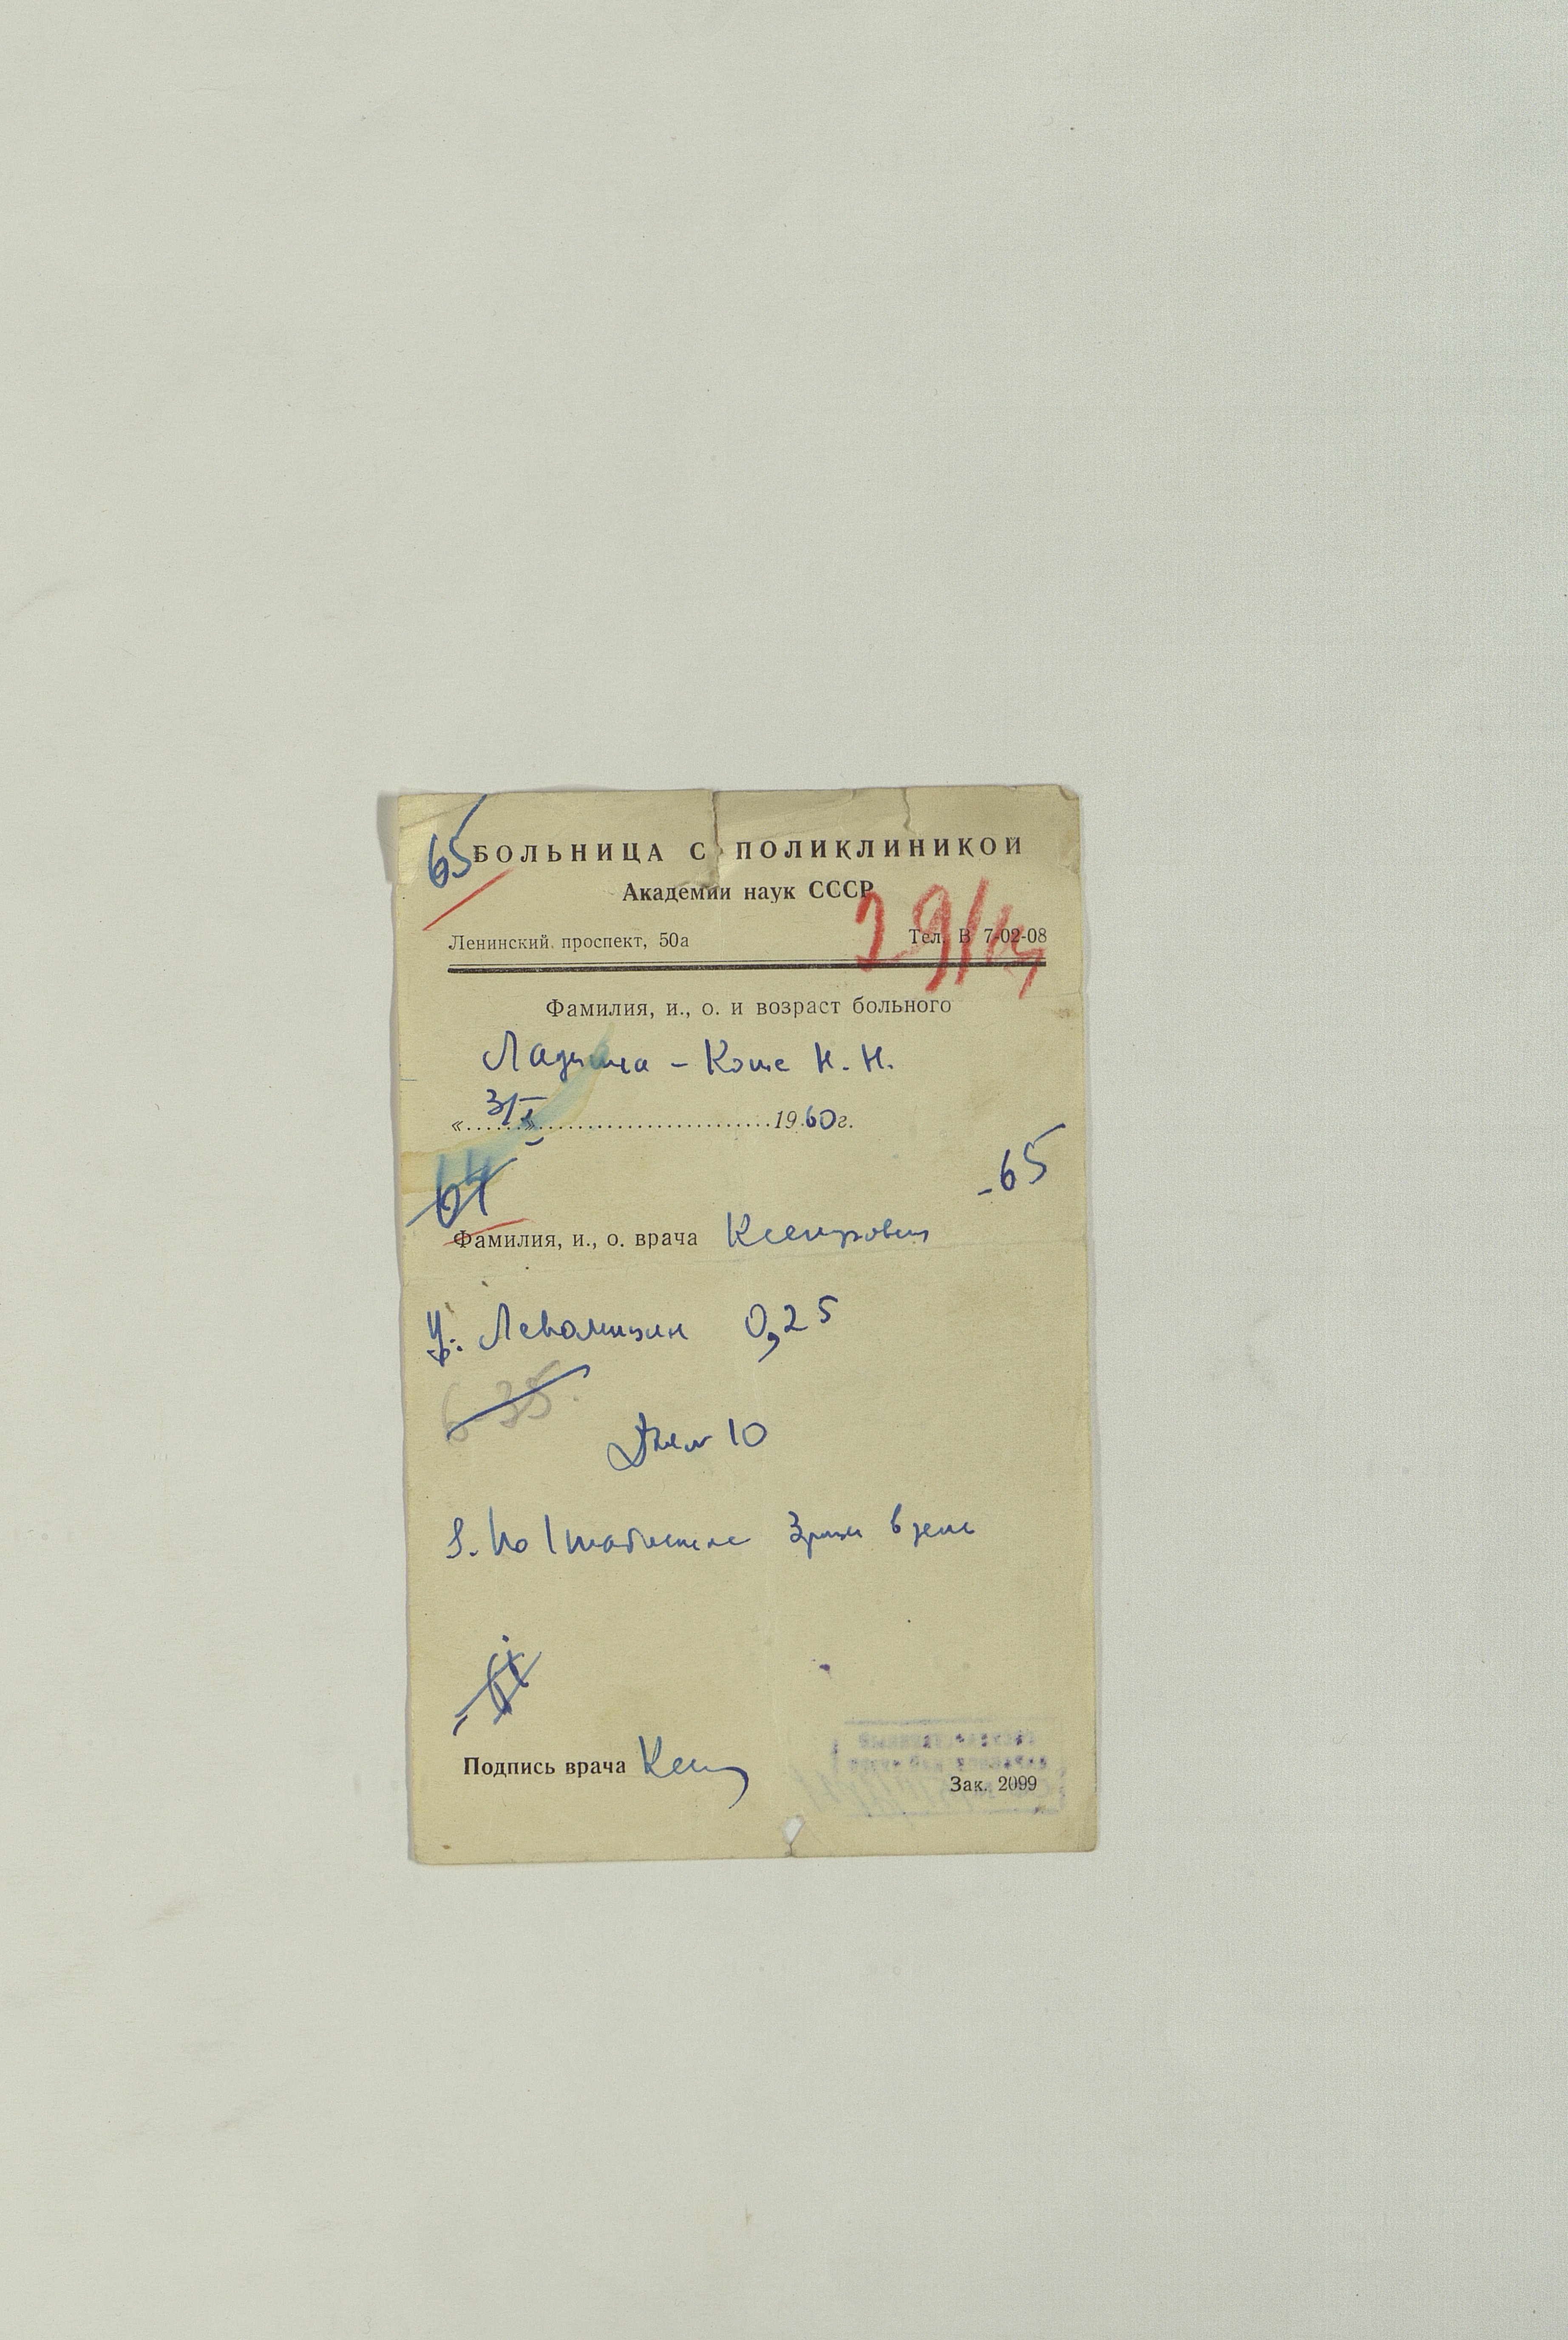 65
БОЛЬНИЦА С ПОЛИКЛИНИКОЙ
Академии наук СССР
29/
Ленинский проспект, 50а Тел. В 7-02-08
Фамилия, и., о. и возраст больного
Ладыжа - Коне Н. Н.
« 31 » 1960 г.
- 65
64
Фамилия, и., о. врача
Левомицин 0,25
6-35.
10
S. По 1 таблетке 3 раза в день
Подпись врача
Зак. 2099